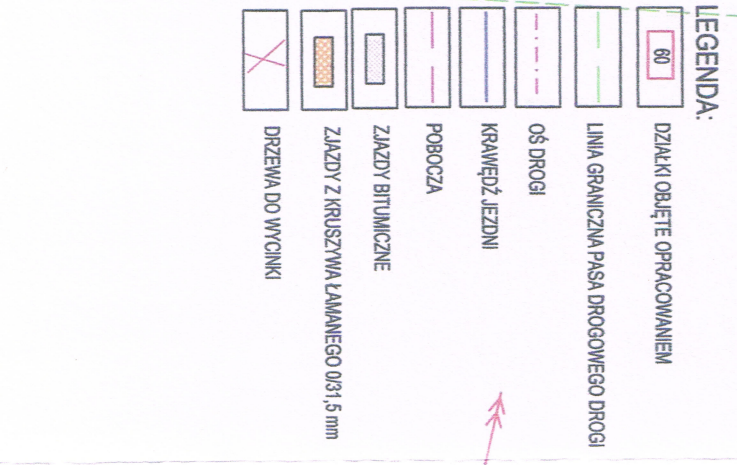 LEGENDA:
60 DZIAŁKI OBJĘTE OPRACOWANIEM
LINIA GRANICZNA PASA DROGOWEGO DROGI
OŚ DROGI
KRAWĘDŹ JEZDNI
POBOCZA
ZJAZDY BITUMICZNE
ZJAZDY Z KRUSZYWA ŁAMANEGO 0/31,5 mm
DRZEWA DO WYCINKI